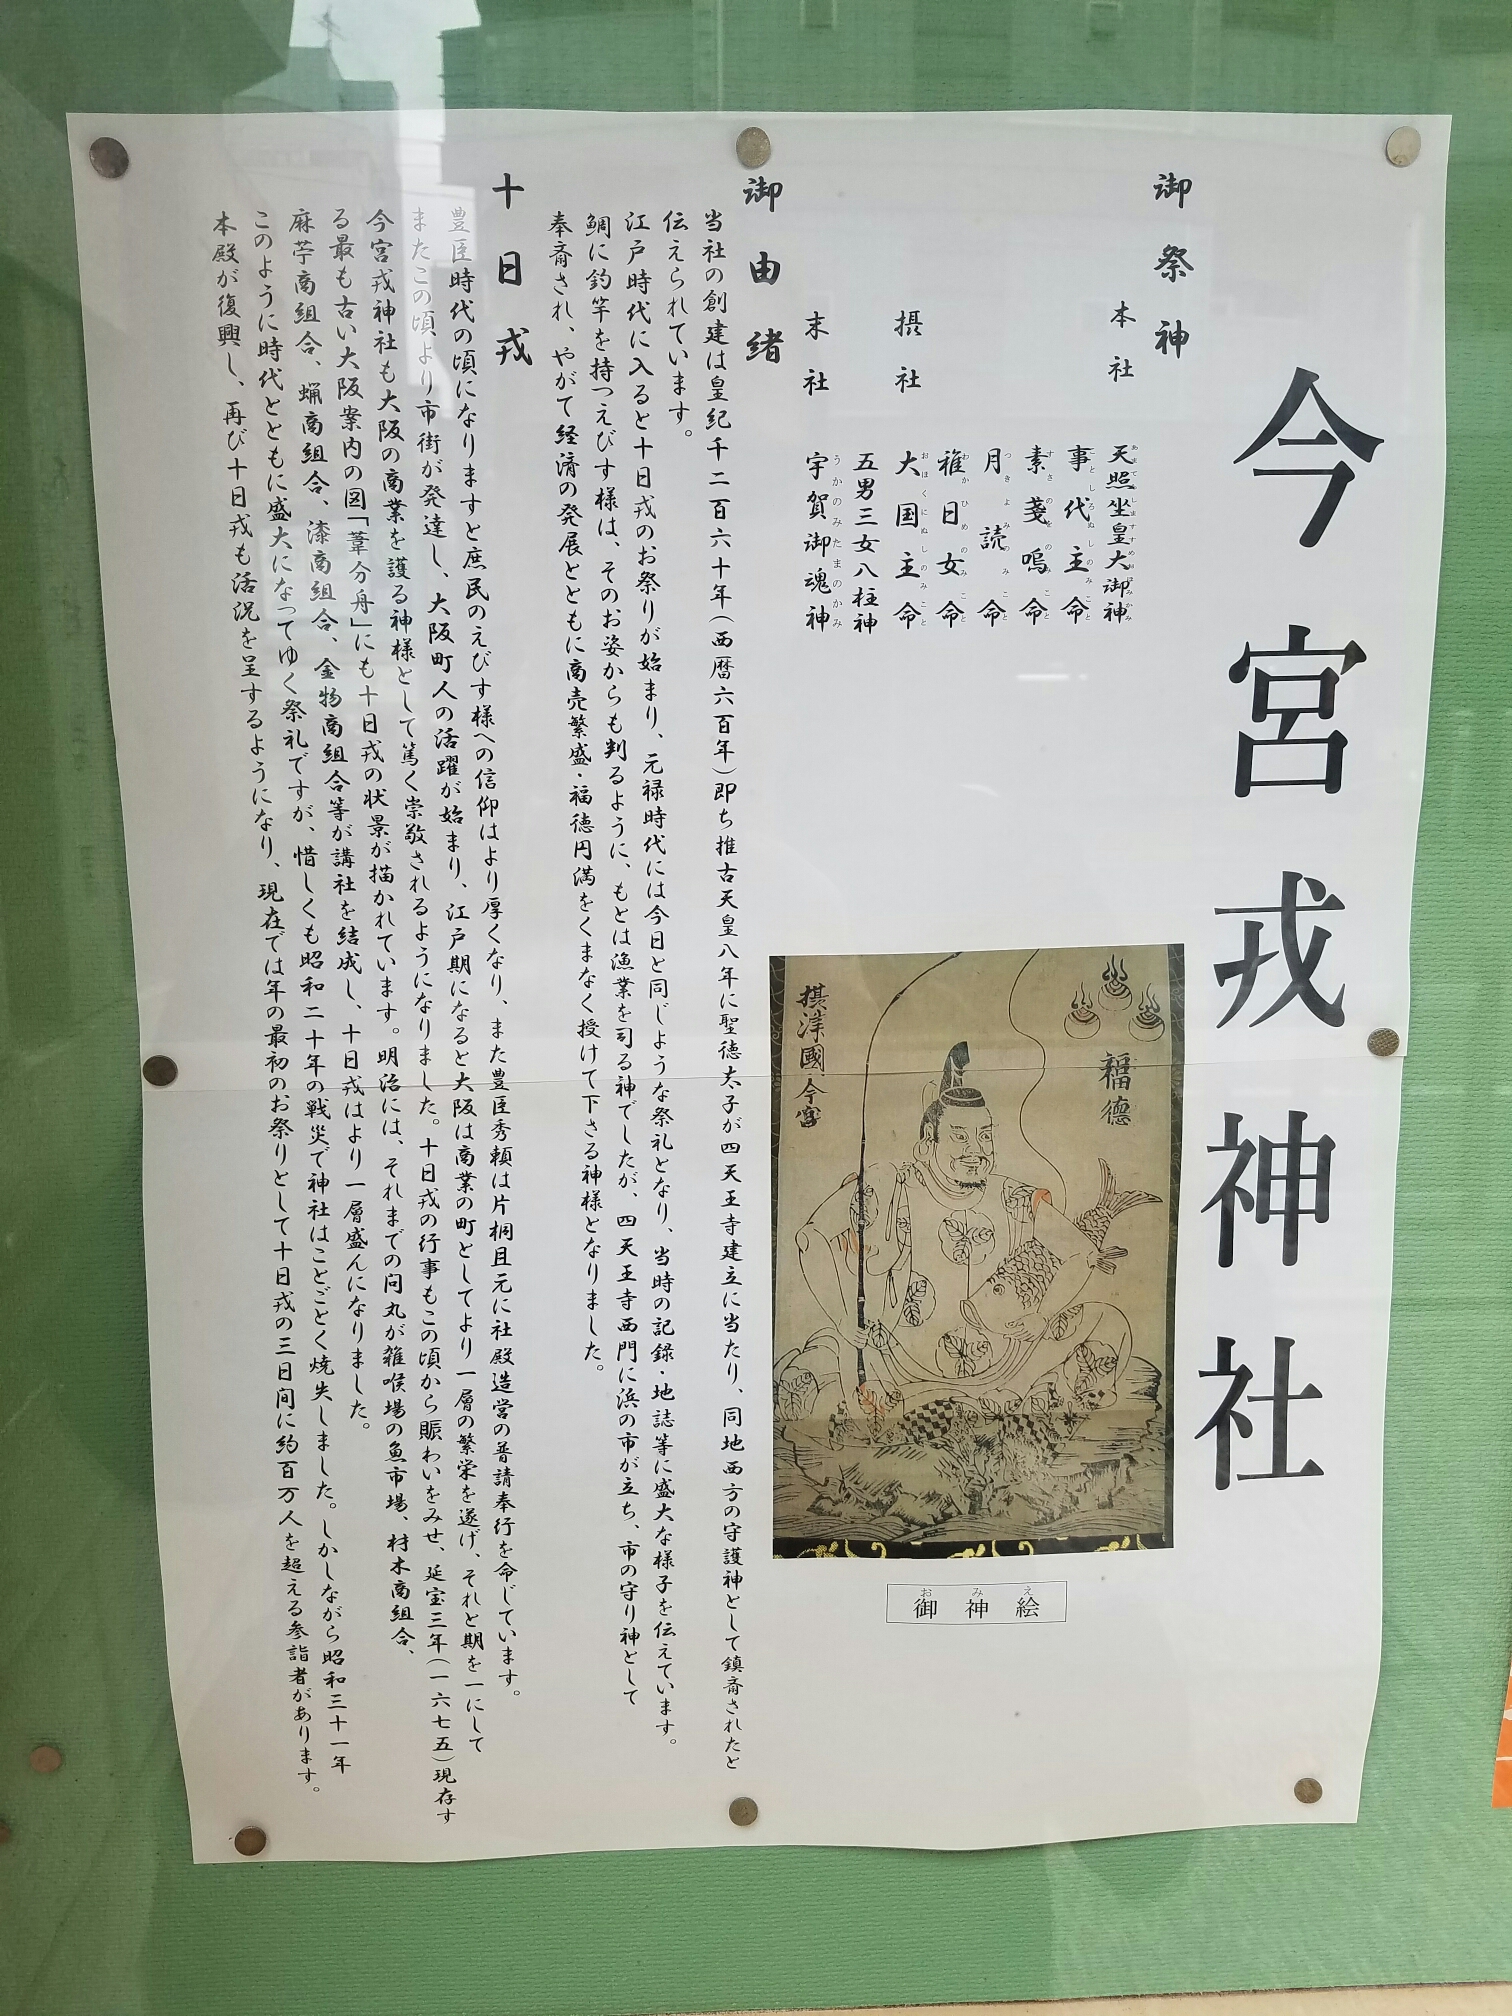 今宮戎神社
御祭神
本社
天照坐皇大御神
あまてらしますすめおほみかみ
事代主命
ことしろぬしのみこと
素戔嗚命
すさのをのみこと
月読命
つきよみのみこと
稚日女命
わかひめのみこと
摂社
大国主命
おほくにぬしのみこと
五男三女八柱神
末社
宇賀御魂神
うかのみたまのかみ
福德
摂津國今宮
御神絵
おみえ
御由緒
当社の創建は皇紀千二百六十年(西暦六百年)即ち推古天皇八年に聖徳太子が四天王寺建立に当たり、同地西方の守護神として鎮斎されたと
伝えられています。
江戸時代に入ると十日戎のお祭りが始まり、元禄時代には今日と同じような祭礼となり、当時の記録・地誌等に盛大な様子を伝えています。
鯛に釣竿を持つえびす様は、そのお姿からも判るように、もとは漁業を司る神でしたが、四天王寺西門に浜の市が立ち、市の守り神として
奉斎され、やがて経済の発展とともに商売繁盛・福徳円満をくまなく授けて下さる神様となりました。
十日戎
豊臣時代の頃になりますと庶民のえびす様への信仰はより厚くなり、また豊臣秀頼は片桐且元に社殿造営の普請奉行を命じています。
またこの頃より市街が発達し、大阪町人の活躍が始まり、江戸期になると大阪は商業の町としてより一層の繁栄を遂げ、それと期を一にして
今宮戎神社も大阪の商業を護る神様として篤く崇敬されるようになりました。十日戎の行事もこの頃から賑わいをみせ、延宝三年(一六七五)現存す
る最も古い大阪案内の図「葦分舟」にも十日戎の状景が描かれています。明治には、それまでの問丸が雑喉場の魚市場、材木商組合、
麻苧商組合、蝋商組合、漆商組合、金物商組合等が講社を結成し、十日戎はより一層盛んになりました。
このように時代とともに盛大になってゆく祭礼ですが、惜しくも昭和二十年の戦災で神社はことごとく焼失しました。しかしながら昭和三十一年
本殿が復興し、再び十日戎も活況を呈するようになり、現在では年の最初のお祭りとして十日戎の三日間に約百万人を超える参詣者があります。